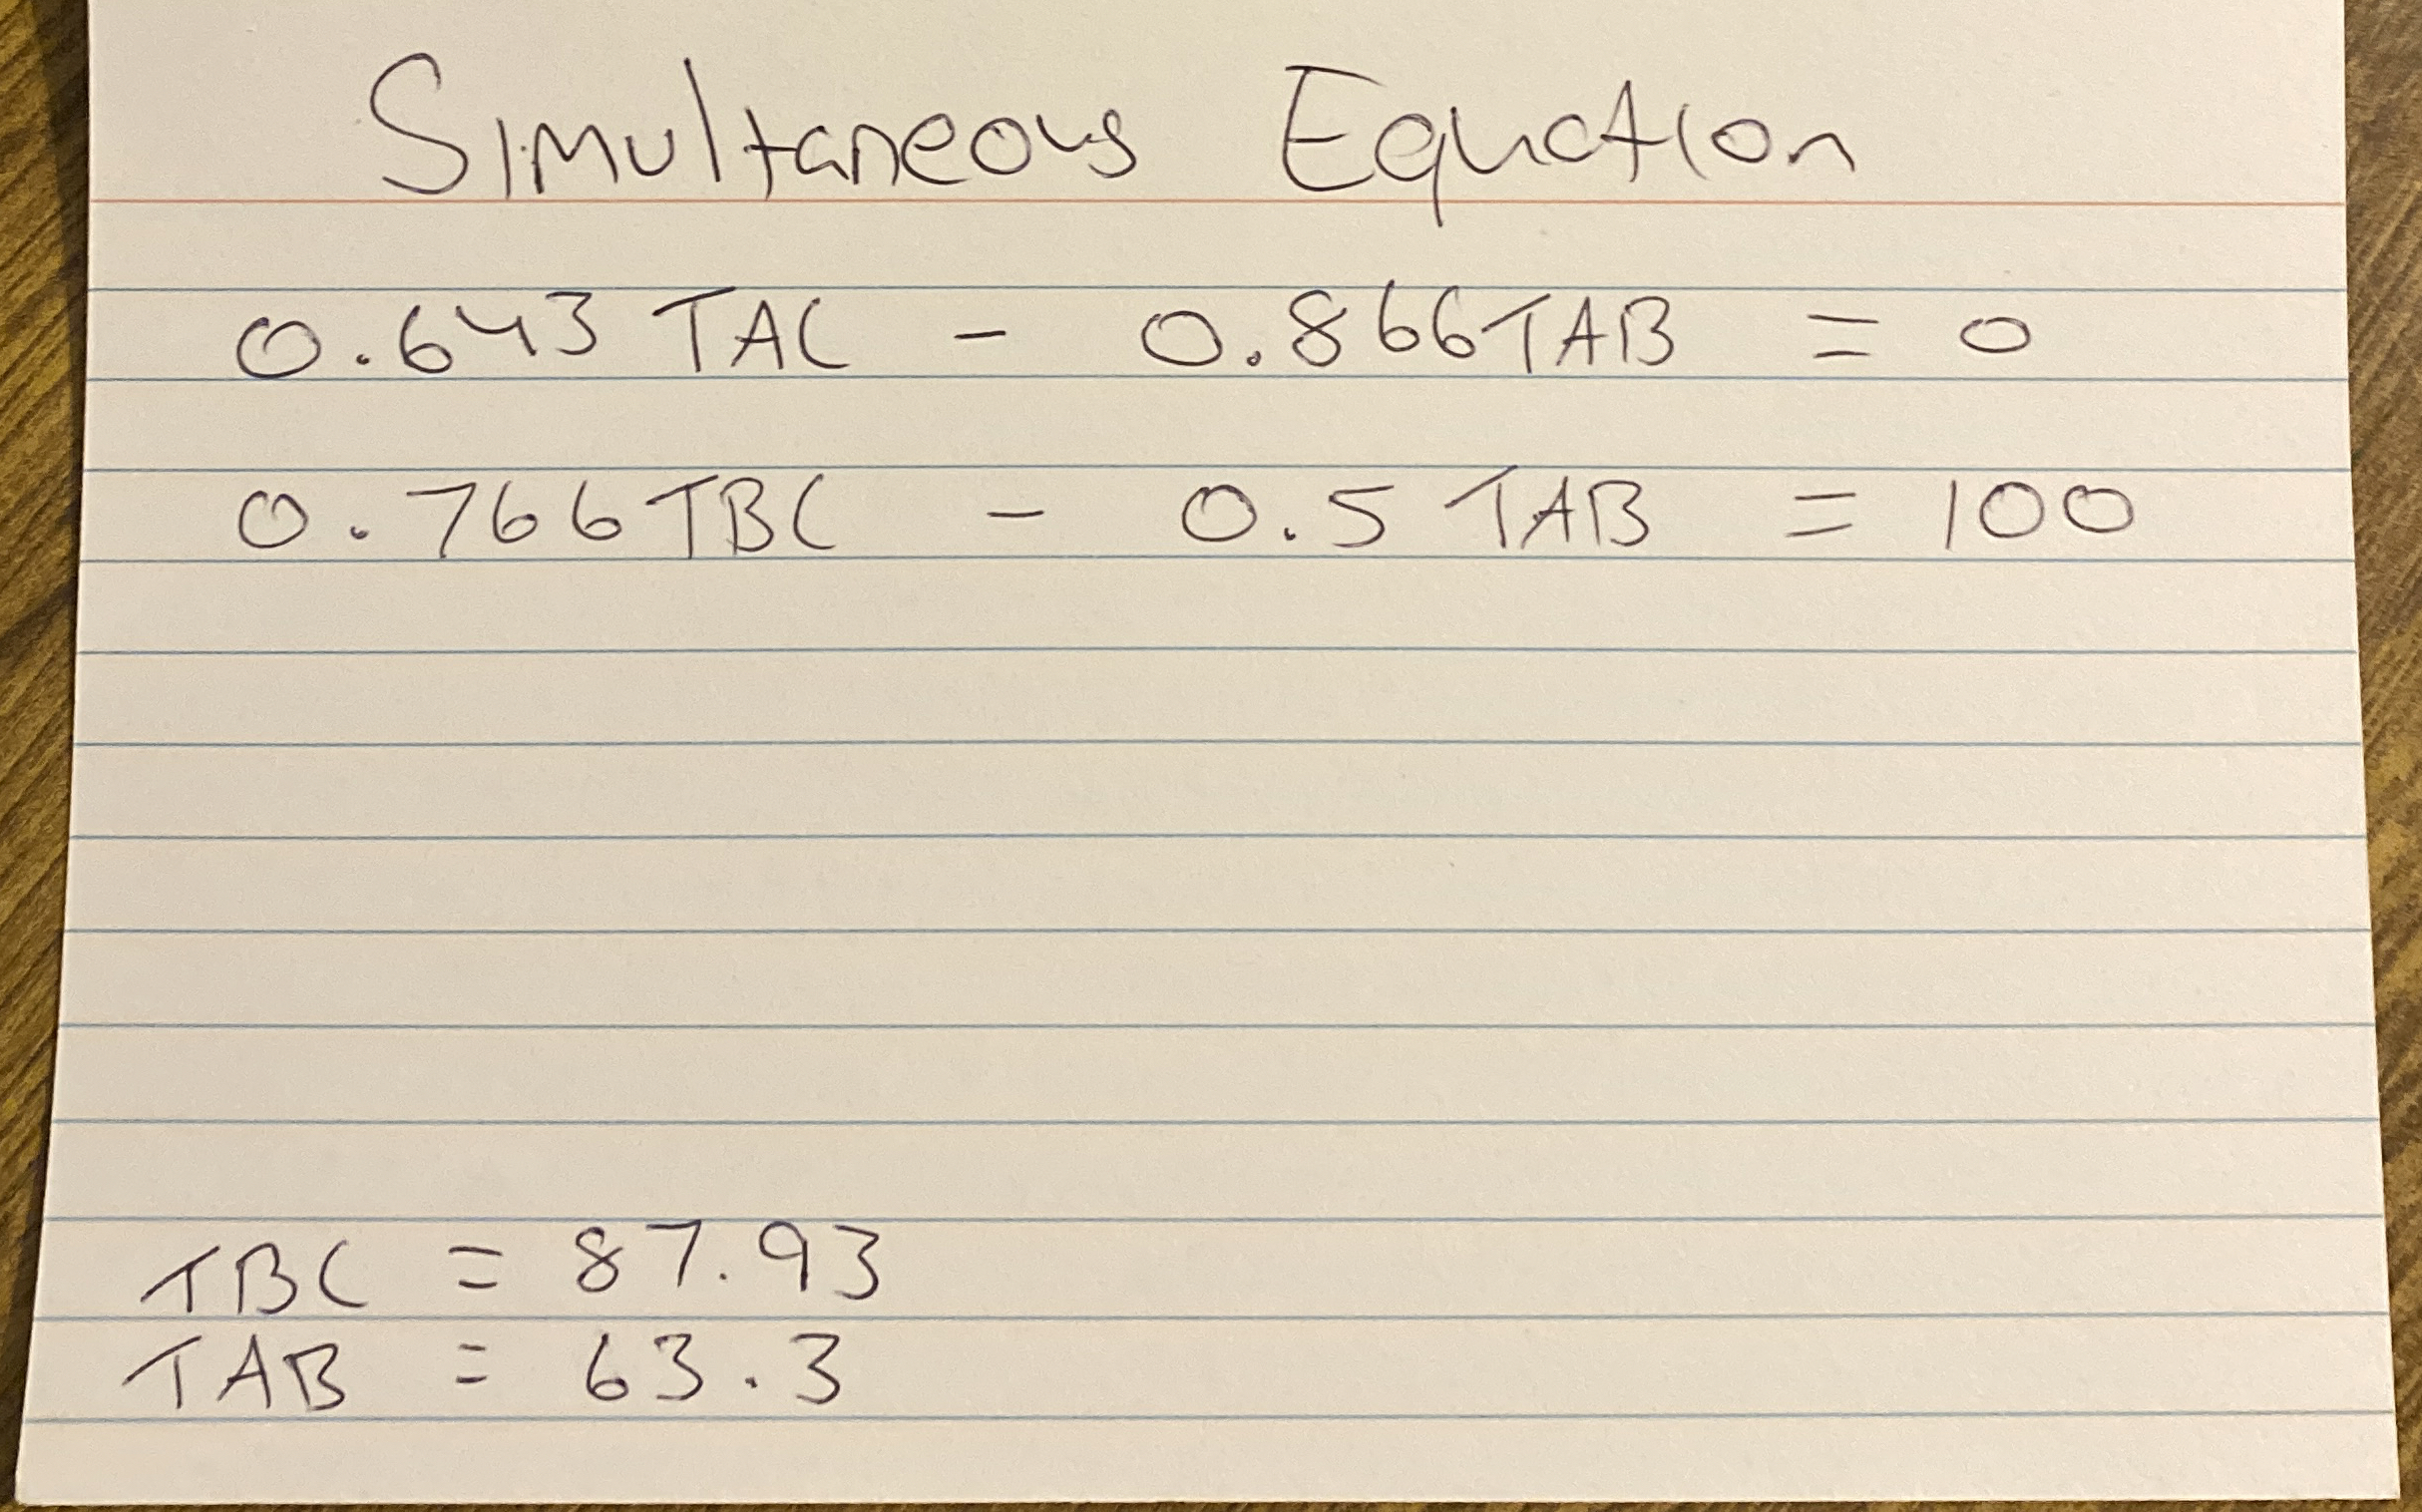 Simultaneous Equation
0.643 TAC - 0.866 TAB = 0
0.766 TBC - 0.5 TAB = 100
TBC = 87.93
TAB = 63.3